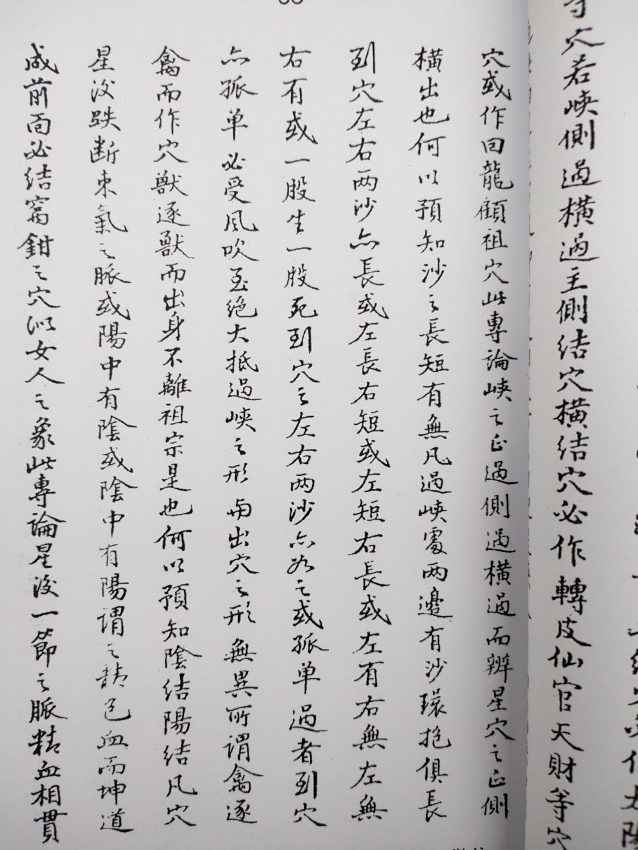 穴若峽側過橫過主側結穴橫結穴必作轉皮仙宮天財等穴
穴或作回龍顧祖穴此專論峽之正過側過橫過而辨星穴之正側
橫出也何以預知沙之長短有無凡過峽處两邊有沙環抱俱長
到穴左右两沙亦長或左長右短或左短右長或左有右無左無
右有或一股生一股死到穴之左右两沙亦如之或孤单過者到穴
亦孤单必受風吹至絶大抵過峽之形與出穴之形無異所謂禽逐
禽而作穴獸逐獸而出身不離祖宗是也何以預知陰結陽結凡穴
星后跌断束氣之脈或陽中有陰或陰中有陽謂之精包血而坤道
成前面必結窩鉗之穴似女人之象此專論星后一節之脈精血相貫